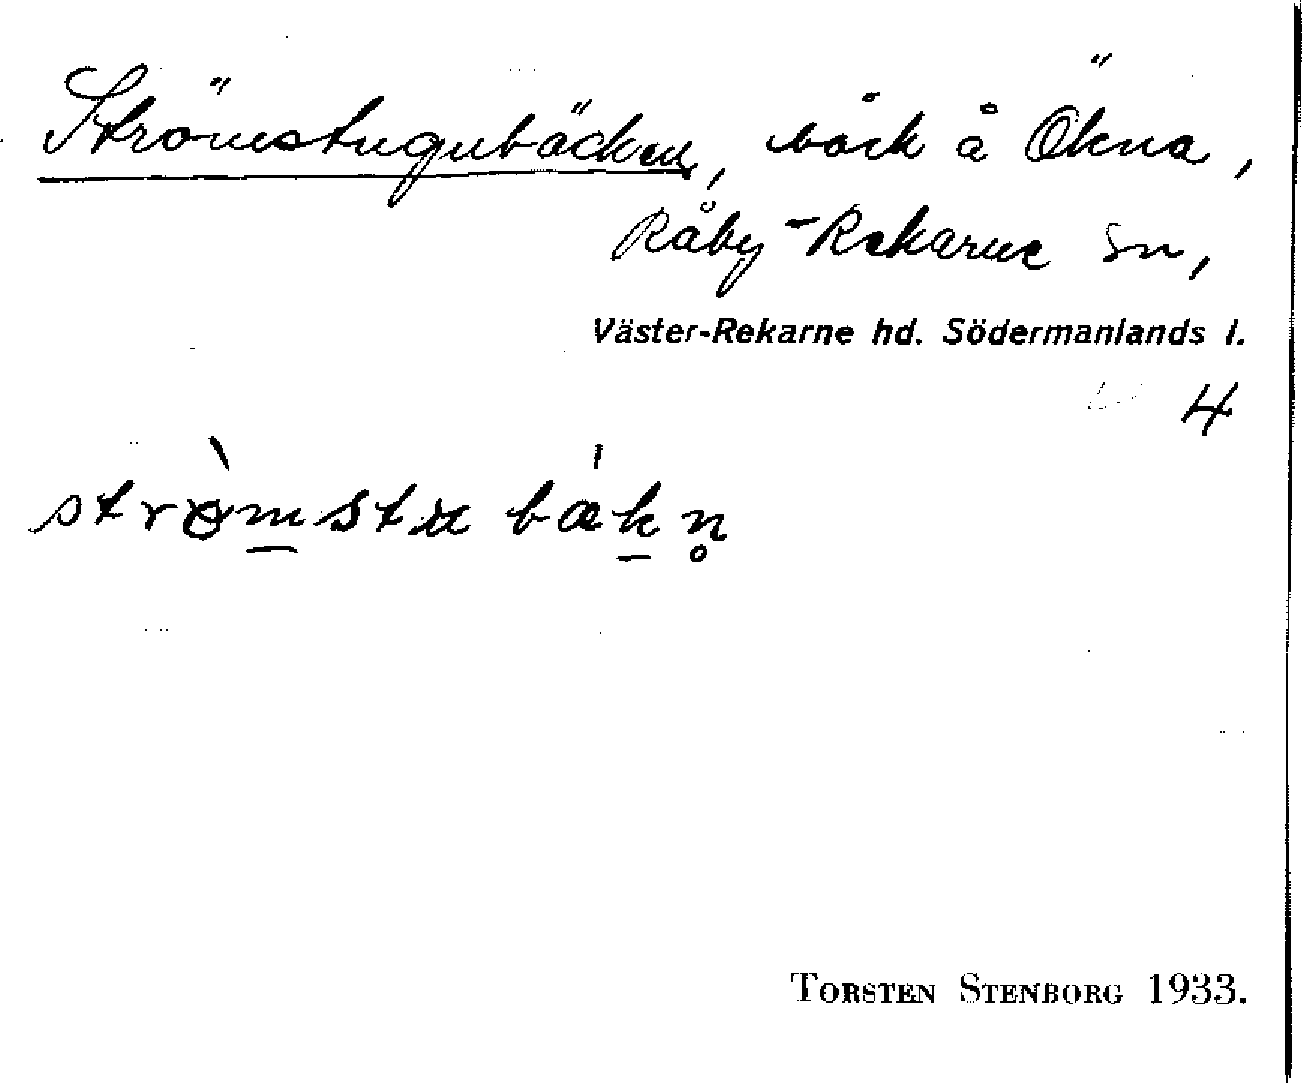 Strömstugubäcken, bäck å Ökna,
Råby-Rekarne sn,
Väster-Rekarne hd. Södermanlands l.
4
TORSTEN STENBORG 1933.